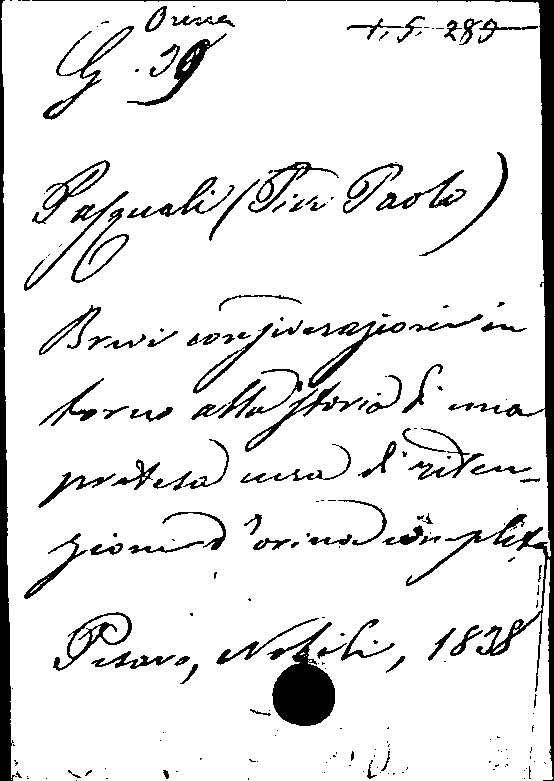 Orina
G. 39
1. 5. 289
Pasquali (Pier Paolo)
Brevi considerazioni in
torno alla storia di una
pretesa cura di riten-
zione d'orina completa
Pesaro, Nobili, 1838